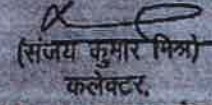 (संजय कुमार मिश्र)
कलेक्टर,